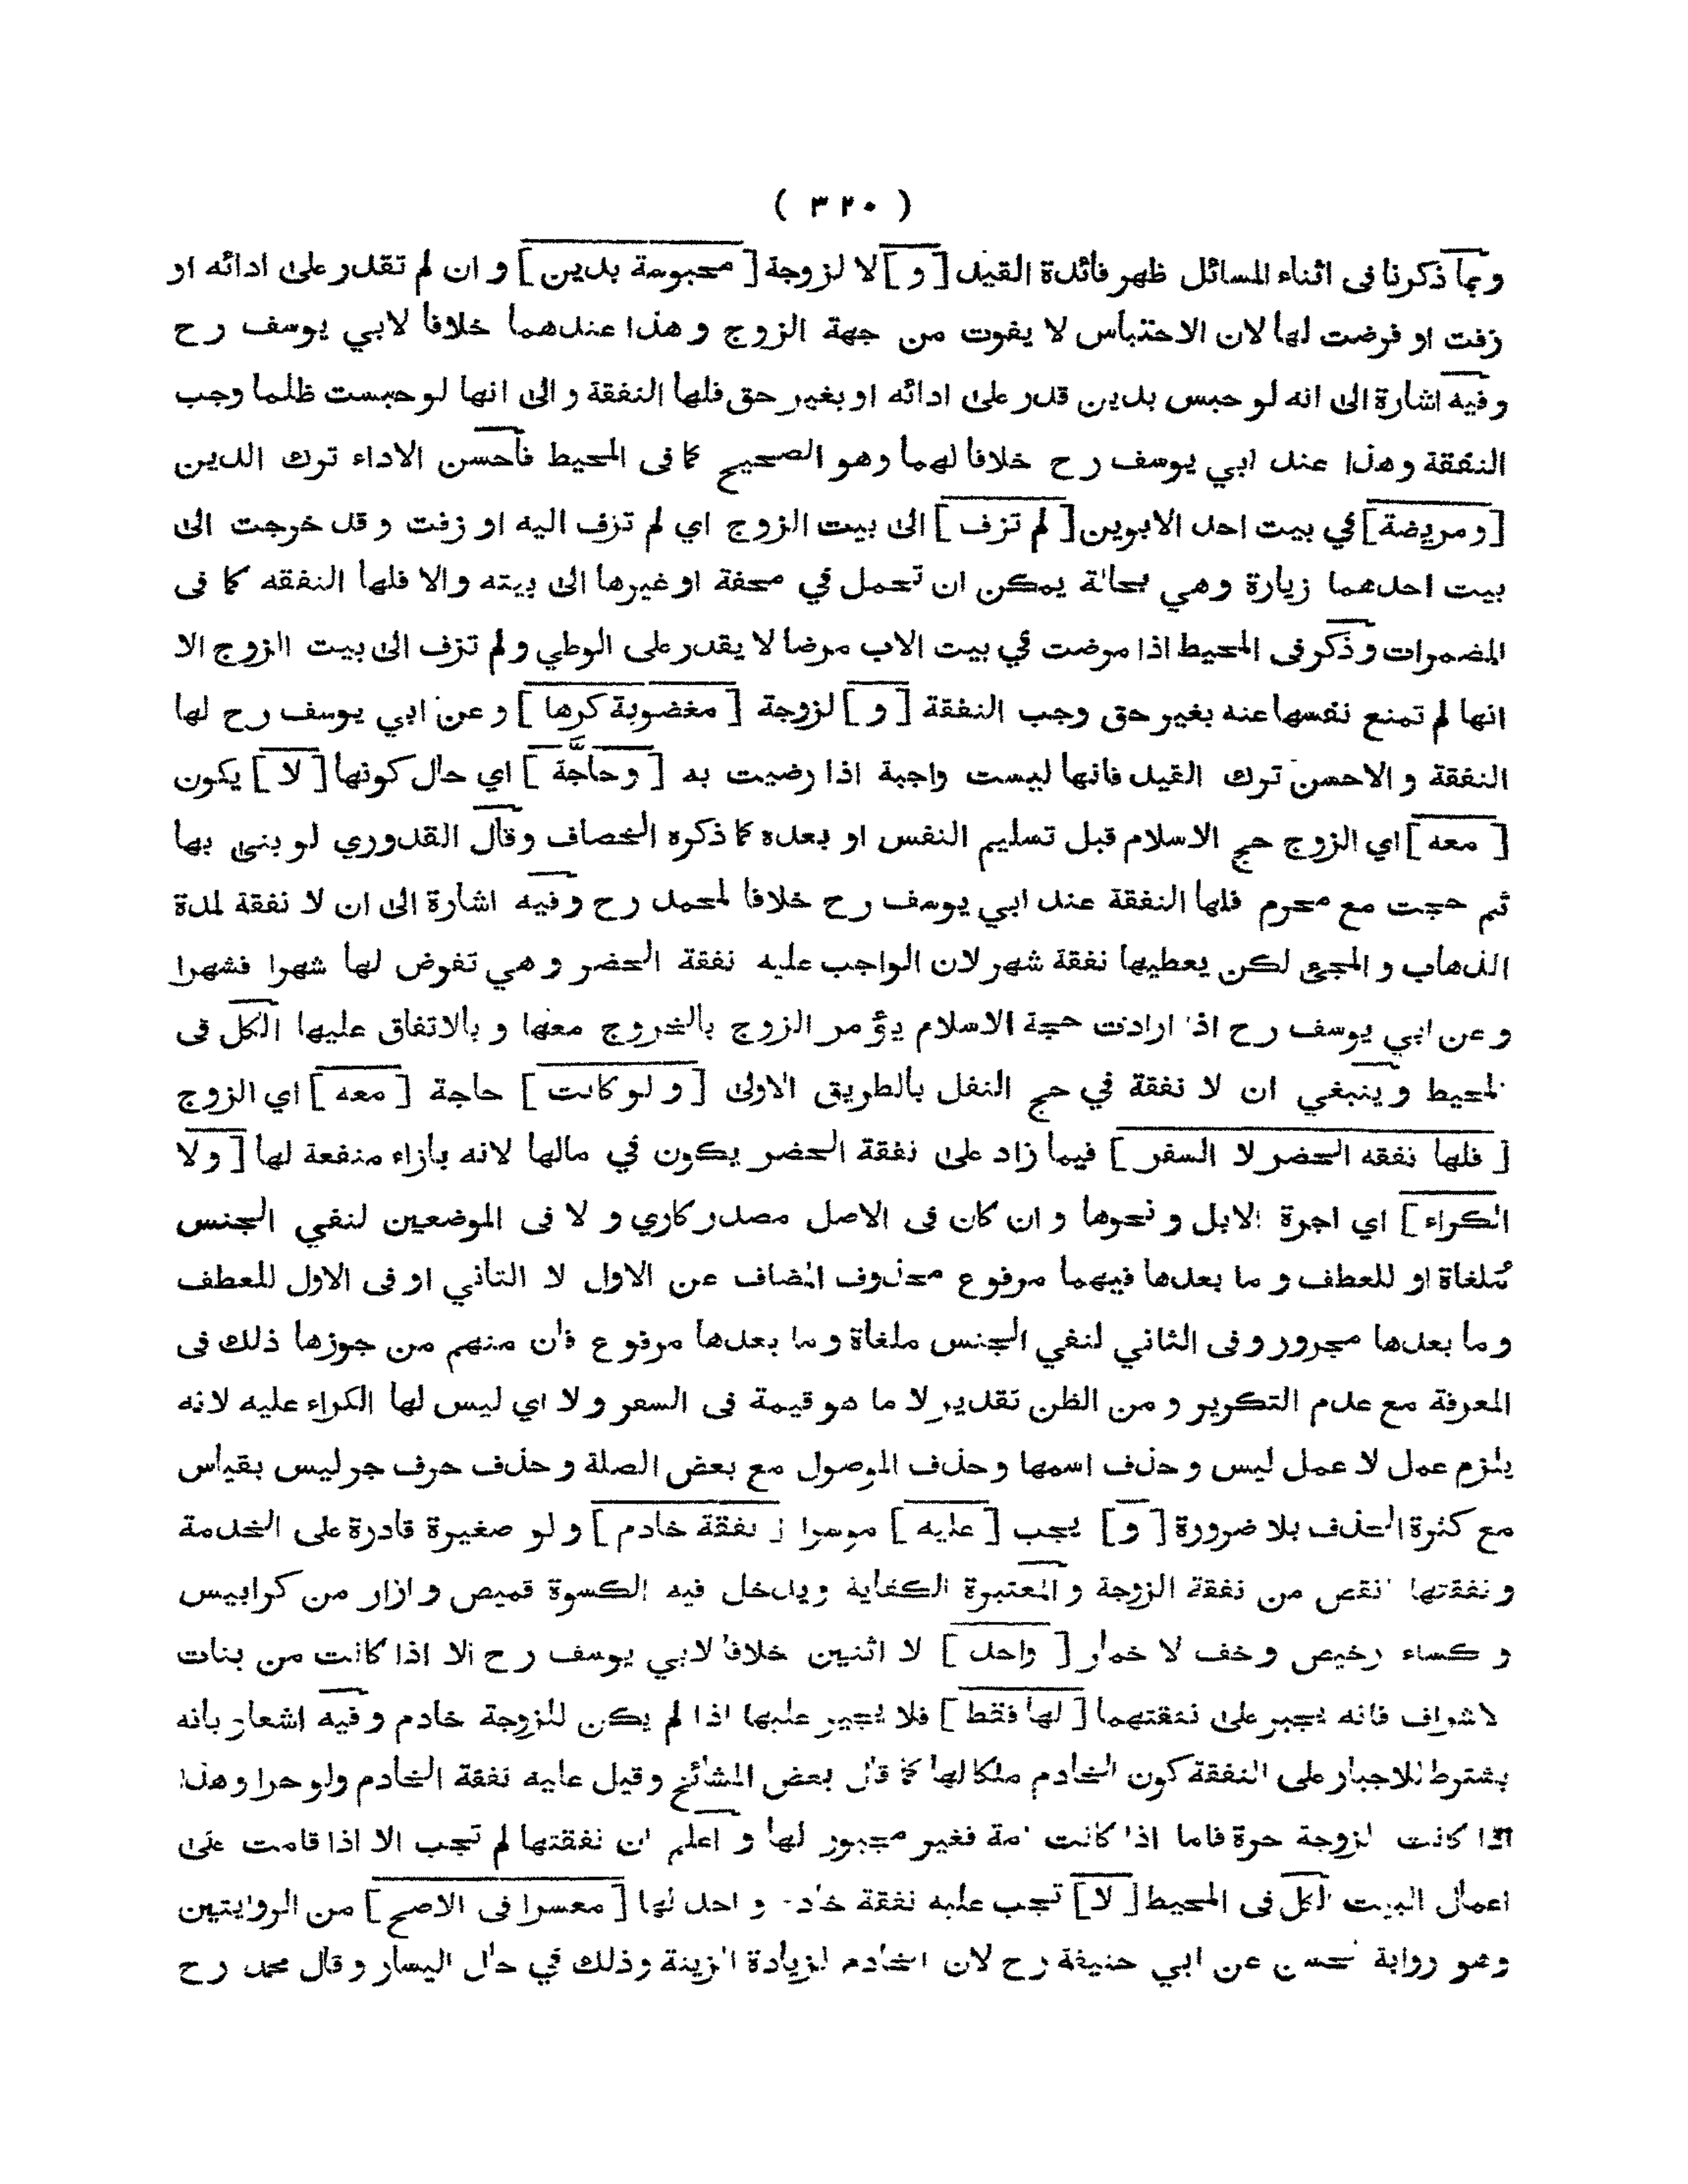 ( ٣٢٠ )
وبما ذكرنا فى اثناء المسائل ظهر فائدة القيد [ و ] لا لزوجة [ محبوسة بدين ] و ان لم تقدر على ادائه او
زفت او فرضت لها لان الاحتباس لا يفوت من جهة الزوج و هذا عندهما خلافا لابي يوسف رح
وفيه اشارة الى انه لو حبس بدين قدر على ادائه او بغير حق فلها النفقة و الى انها لو حبست ظلما وجب
النفقة و هذا عند ابي يوسف رح خلافا لهما وهو الصحيح كما فى المحيط فاحسن الاداء ترك الدين
[ و مريضة ] في بيت احد الابوين [ لم تزف ] الى بيت الزوج اي لم تزف اليه او زفت و قد خرجت الى
بيت احدهما زيارة وهي بحالة يمكن ان تحمل في محفة او غيرها الى بيته والا فلها النفقه كما فى
المضمرات و ذكر فى المحيط اذا مرضت في بيت الاب مرضا لا يقدر على الوطي و لم تزف الى بيت الزوج الا
انها لم تمنع نفسها عنه بغير حق وجب النفقة [ و ] لزوجة [ مغضوبة كرها ] و عن ابي يوسف رح لها
النفقة و الاحسن ترك القيد فانها ليست واجبة اذا رضيت به [ و حاجّة ] اي حال كونها [ لا ] يكون
[ معه ] اي الزوج حج الاسلام قبل تسليم النفس او بعده كما ذكره الخصاف وقال القدوري لو بنى بها
ثم حجت مع محرم فلها النفقة عند ابي يوسف رح خلافا لمحمد رح و فيه اشارة الى ان لا نفقة لمدة
الذهاب و المجئ لكن يعطيها نفقة شهر لان الواجب عليه نفقة الحضر و هي تفوض لها شهرا فشهرا
و عن ابي يوسف رح اذا ارادت حجة الاسلام يؤمر الزوج بالخروج معها و بالاتفاق عليها الكل فى
المحيط و ينبغي ان لا نفقة في حج النفل بالطريق الاولى [ و لو كانت ] حاجة [ معه ] اي الزوج
[ فلها نفقه الحضر لا السفر ] فيما زاد على نفقة الحضر يكون في مالها لانه بازاء منفعة لها [ و لا
الكراء ] اي اجرة الابل و نحوها و ان كان فى الاصل مصدر كاري و لا فى الموضعين لنفي الجنس
ملغاة او للعطف و ما بعدها فيهما مرفوع محذوف المضاف عن الاول لا الثاني او فى الاول للعطف
و ما بعدها مجرور و فى الثاني لنفي الجنس ملغاة و ما بعدها مرفوع فان منهم من جوزها ذلك فى
المعرفة مع عدم التكرير و من الظن تقدير لا ما هو قيمة فى السعر و لا اي ليس لها الكراء عليه لانه
يلزم عمل لا عمل ليس و حذف اسمها و حذف الموصول مع بعض الصلة و حذف حرف جر ليس بقياس
مع كثرة الحذف بلا ضرورة [ و ] يجب [ عليه ] موسرا [ نفقة خادم ] و لو صغيرة قادرة على الخدمة
و نفقتها انقص من نفقة الزوجة و المعتبرة الكفاية ويدخل فيه الكسوة قميص و ازار من كرابيس
و كساء رخيص و خف لا خمار [ واحد ] لا اثنين خلافا لابي يوسف رح الا اذا كانت من بنات
لاشراف فانه يجبر على نفقتهما [ لها فقط ] فلا يجبر عليها اذا لم يكن للزوجة خادم و فيه اشعار بانه
يشترط للاجبار على النفقة كون الخادم ملكا لها كما قال بعض المشائخ و قيل عليه نفقة الخادم ولو حرا و هذا
اذا كانت الزوجة حرة فاما اذا كانت امة فغير مجبور لها و اعلم ان نفقتها لم تجب الا اذا قامت على
اعمال البيت الكل فى المحيط [ لا ] تجب عليه نفقة خادم واحد لها [ معسرا فى الاصح ] من الروايتين
وهو رواية الحسن عن ابي حنيفة رح لان الخادم لزيادة الزينة وذلك في حال اليسار و قال محمد رح